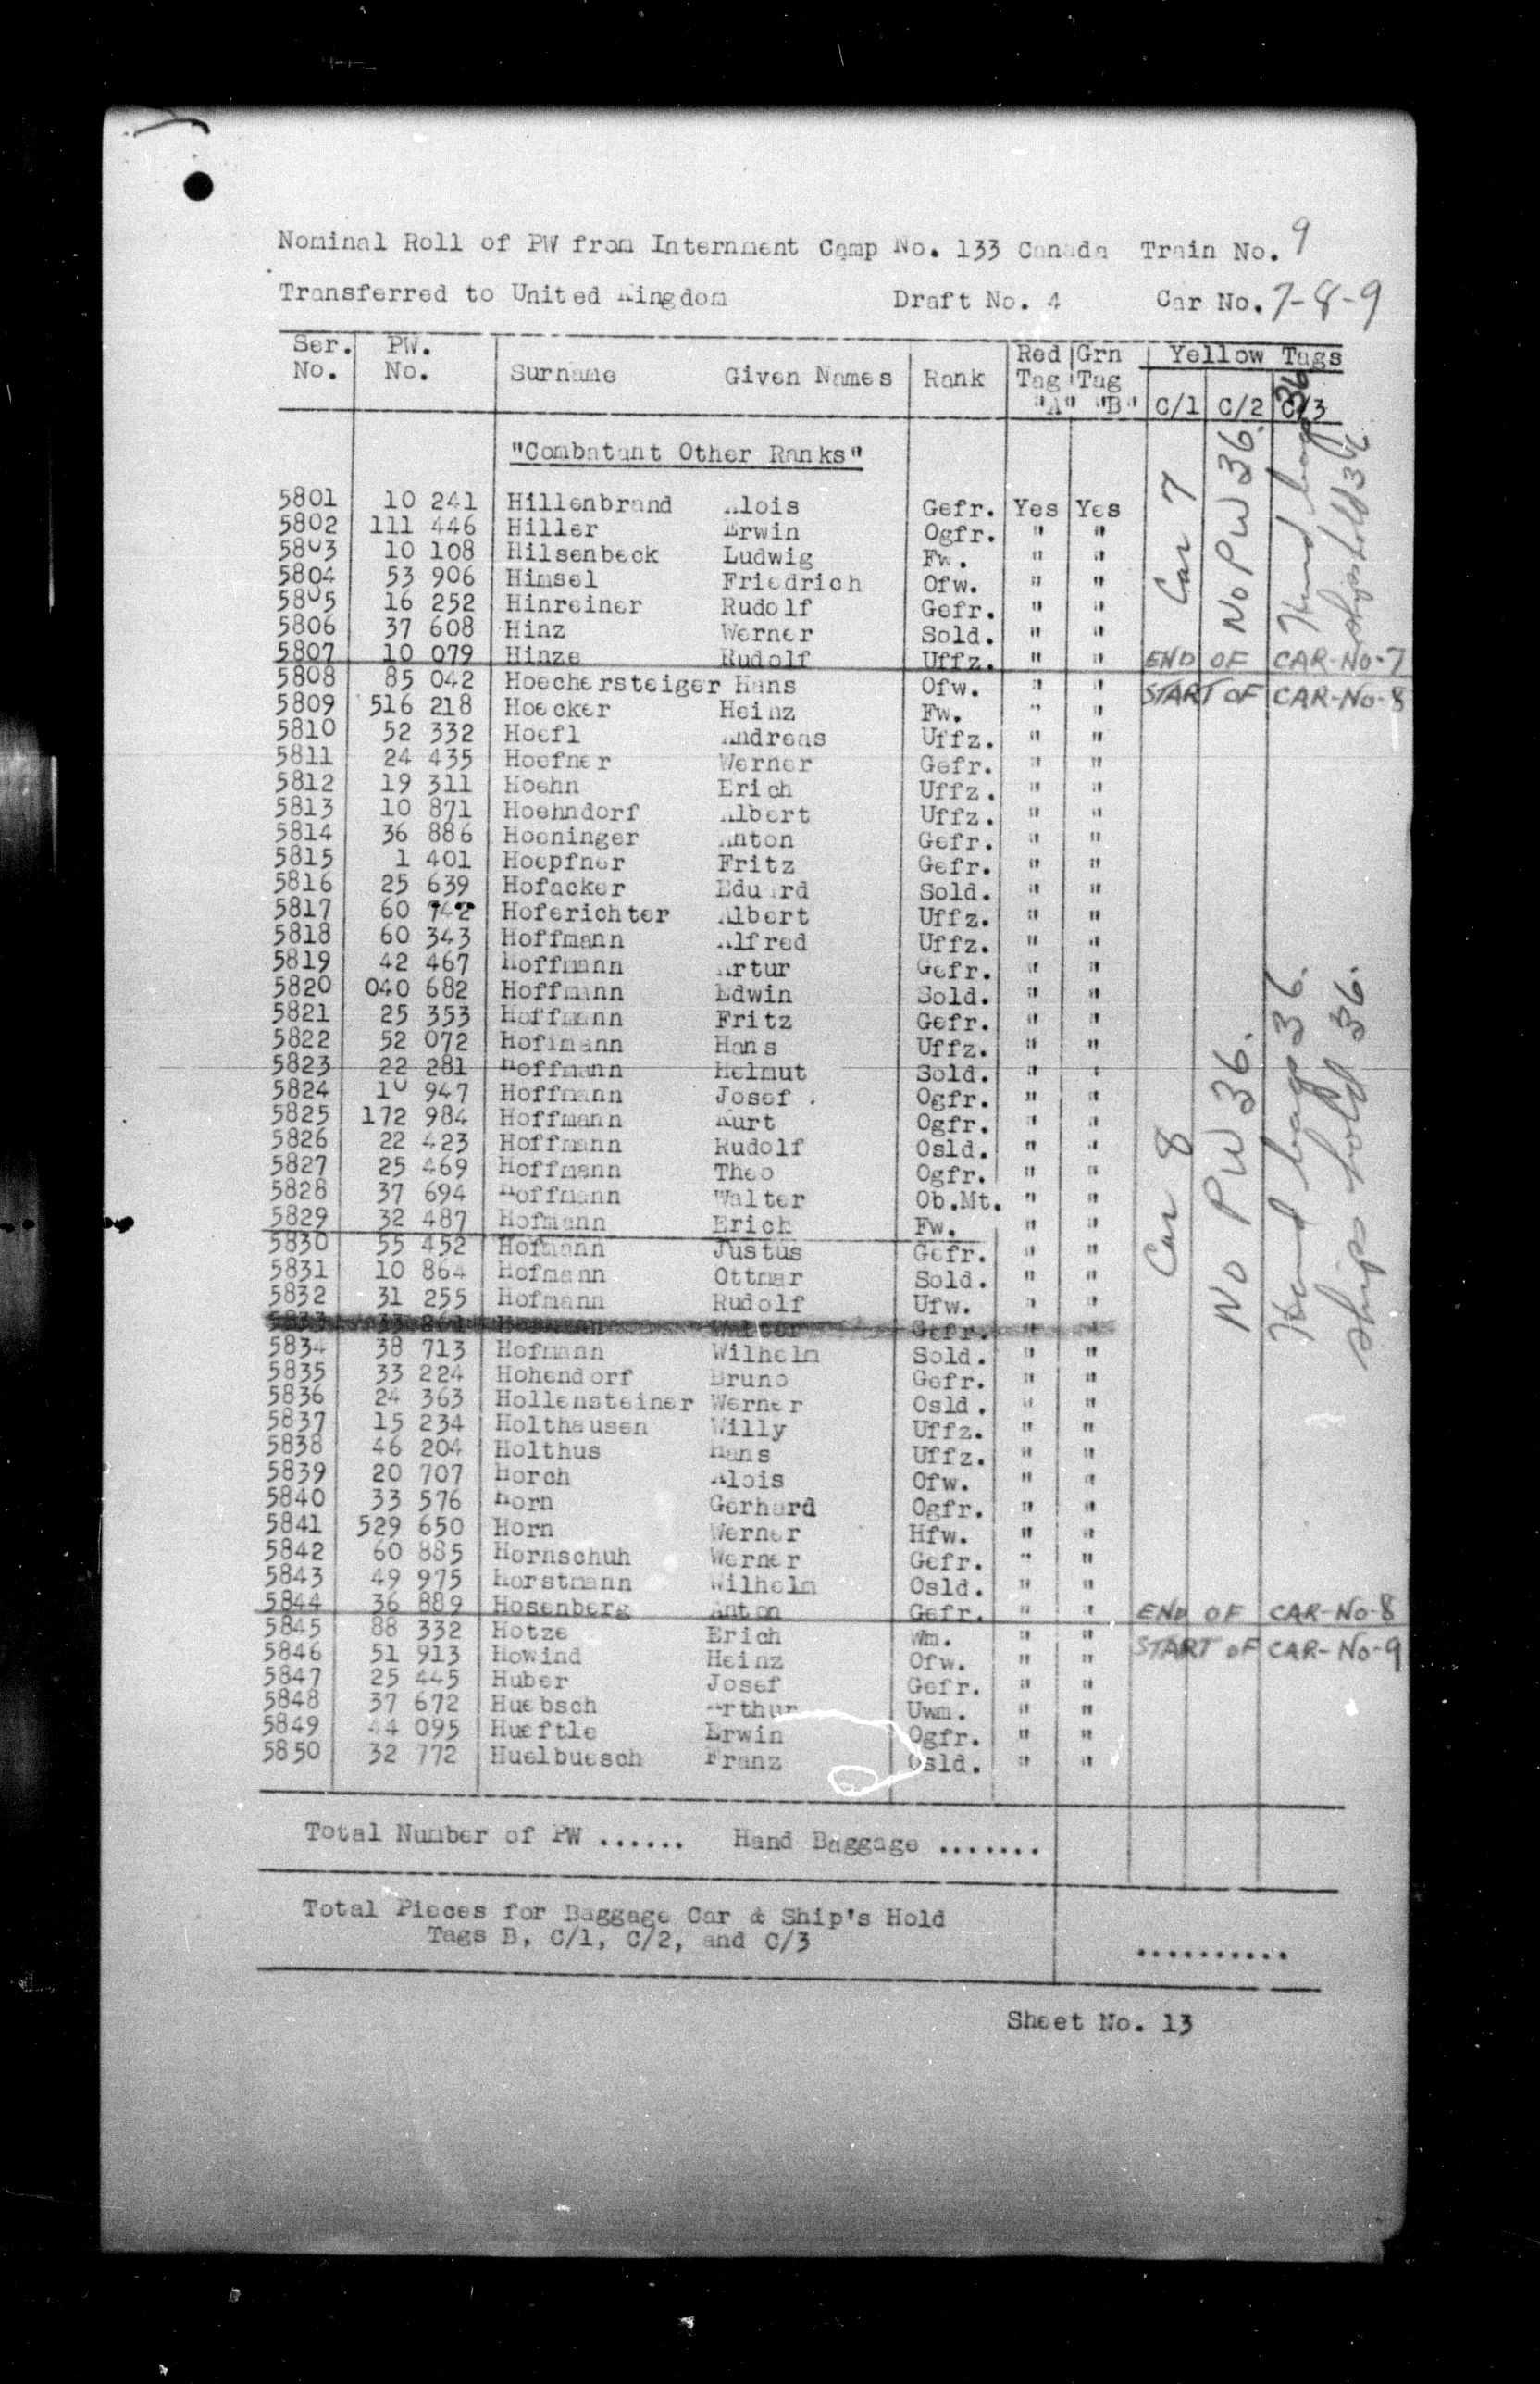 Nominal Roll of PW from Internment Camp No. 133 Canada Train No. 9
Transferred to United Kingdom Draft No. 4 Car No. 7-8-9
Ser. No. PW. No. Surname Given Names Rank Red Tag "A" Grn Tag "B" Yellow Tags C/1 C/2 C/3
"Combatant Other Ranks"
5801 10 241 Hillenbrand Alois Gefr. Yes Yes
5802 111 446 Hiller Erwin Ogfr. " "
5803 10 108 Hilsenbeck Ludwig Fw. " "
5804 53 906 Himsel Friedrich Ofw. " "
5805 16 252 Hinreiner Rudolf Gefr. " "
5806 37 608 Hinz Werner Sold. " "
5807 10 079 Hinze Rudolf Uffz. " " END OF CAR-No-7
5808 85 042 Hoechersteiger Hans Ofw. " " START OF CAR-No-8
5809 516 218 Hoecker Heinz Fw. " "
5810 52 332 Hoefl Andreas Uffz. " "
5811 24 435 Hoefner Werner Gefr. " "
5812 19 311 Hoehn Erich Uffz. " "
5813 10 871 Hoehndorf Albert Uffz. " "
5814 36 886 Hoeninger Anton Gefr. " "
5815 1 401 Hoepfner Fritz Gefr. " "
5816 25 639 Hofacker Eduard Sold. " "
5817 60 742 Hoferichter Albert Uffz. " "
5818 60 343 Hoffmann Alfred Uffz. " "
5819 42 467 Hoffmann Artur Gefr. " "
5820 040 682 Hoffmann Edwin Sold. " "
5821 25 353 Hoffmann Fritz Gefr. " "
5822 52 072 Hoffmann Hans Uffz. " "
5823 22 281 Hoffmann Helmut Sold. " "
5824 10 947 Hoffmann Josef . Ogfr. " "
5825 172 984 Hoffmann Kurt Ogfr. " "
5826 22 423 Hoffmann Rudolf Osld. " "
5827 25 469 Hoffmann Theo Ogfr. " "
5828 37 694 Hoffmann Walter Ob.Mt. " "
5829 32 487 Hofmann Erich Fw. " "
5830 55 452 Hofmann Justus Gefr. " "
5831 10 864 Hofmann Ottmar Sold. " "
5832 31 255 Hofmann Rudolf Ufw. " "
5833 33 261 Hofmann Walter Gefr. " "
5834 38 713 Hofmann Wilhelm Sold. " "
5835 33 224 Hohendorf Bruno Gefr. " "
5836 24 363 Hollensteiner Werner Osld. " "
5837 15 234 Holthausen Willy Uffz. " "
5838 46 204 Holthus Hans Uffz. " "
5839 20 707 Horch Alois Ofw. " "
5840 33 576 Horn Gerhard Ogfr. " "
5841 529 650 Horn Werner Hfw. " "
5842 60 885 Hornschuh Werner Gefr. " "
5843 49 975 Horstmann Wilhelm Osld. " "
5844 36 889 Hosenberg Anton Gefr. " " END OF CAR-No-8
5845 88 332 Hotze Erich Wm. " " START OF CAR-No-9
5846 51 913 Howind Heinz Ofw. " "
5847 25 445 Huber Josef Gefr. " "
5848 37 672 Huebsch Arthur Uwm. " "
5849 44 095 Hueftle Erwin Ogfr. " "
5850 32 772 Huelbuesch Franz Osld. " "
Car 7
No PW 36.
Hand bag 36
ships hold 36
Car 8
No PW 36.
Hand bag 36.
ships hold 36.
Total Number of PW ...... Hand Baggage .......
Total Pieces for Baggage Car & Ship's Hold
Tags B, C/1, C/2, and C/3 ..........
Sheet No. 13